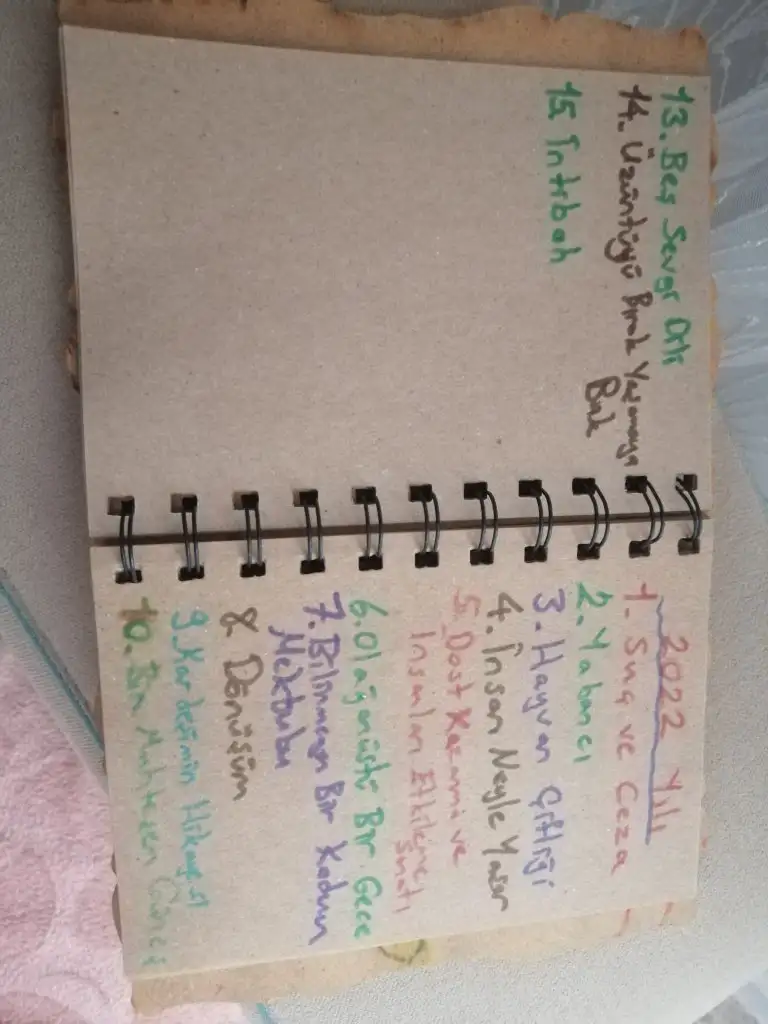 13. Beş Sevgi Dili
14. Üzüntüyü Bırak Yaşamaya
Bak
15. İntibah
2022 Yılı
1. Suç ve Ceza
2. Yabancı
3. Hayvan Çiftliği
4. İnsan Neyle Yaşar
5. Dost Kazanma ve
İnsanları Etkileme
Sanatı
6. Olağanüstü Bir Gece
7. Bilinmeyen Bir Kadının
Mektubu
8. Dönüşüm
9. Kardeşimin Hikayesi
10. Bin Muhteşem Güneş